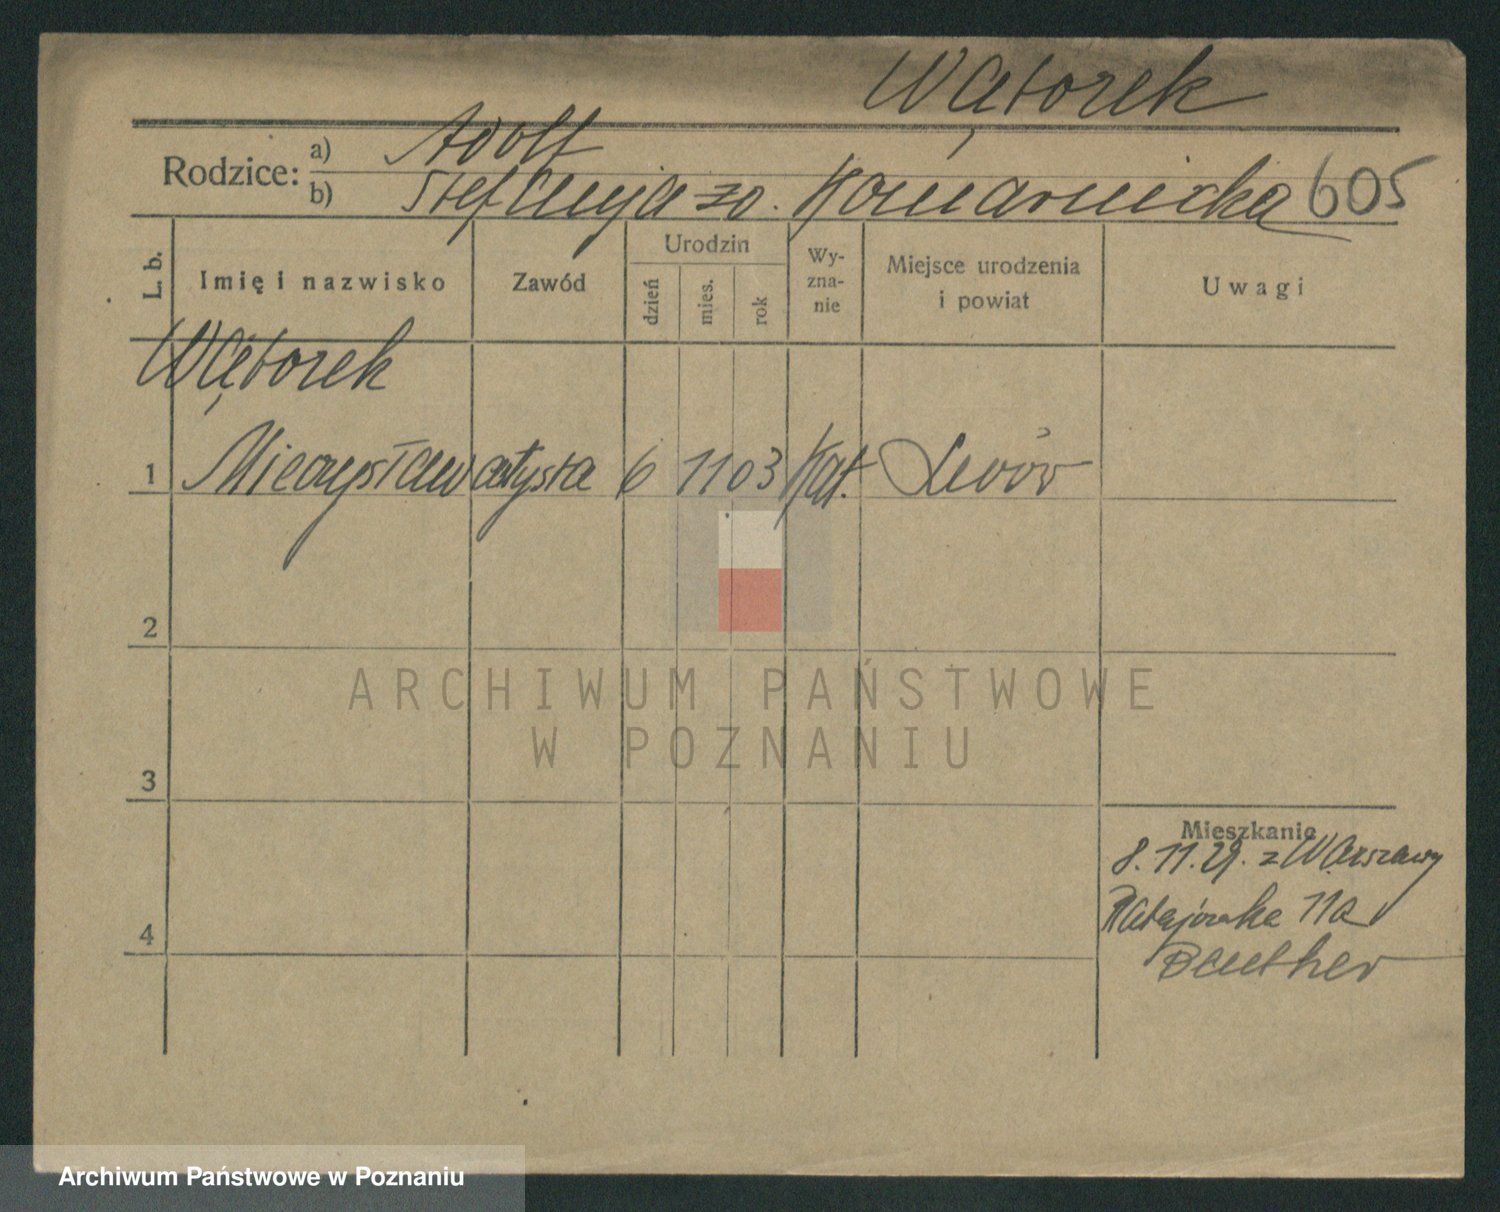 Wątorek
Rodzice: a) Adolf
b) Stefanja zd. Komarnicka 605
L. b. Imię i nazwisko Zawód Urodzin dzień mies. rok Wy-zna-nie Miejsce urodzenia i powiat Uwagi
Wątorek
1 Mieczysław artysta 6 11 03 Kat. Lwów
2
ARCHIWUM PAŃSTWOWE
W POZNANIU
3
Mieszkanie
8.11.29. z Warszawy
Ratajczaka 11a
4
Archiwum Państwowe w Poznaniu